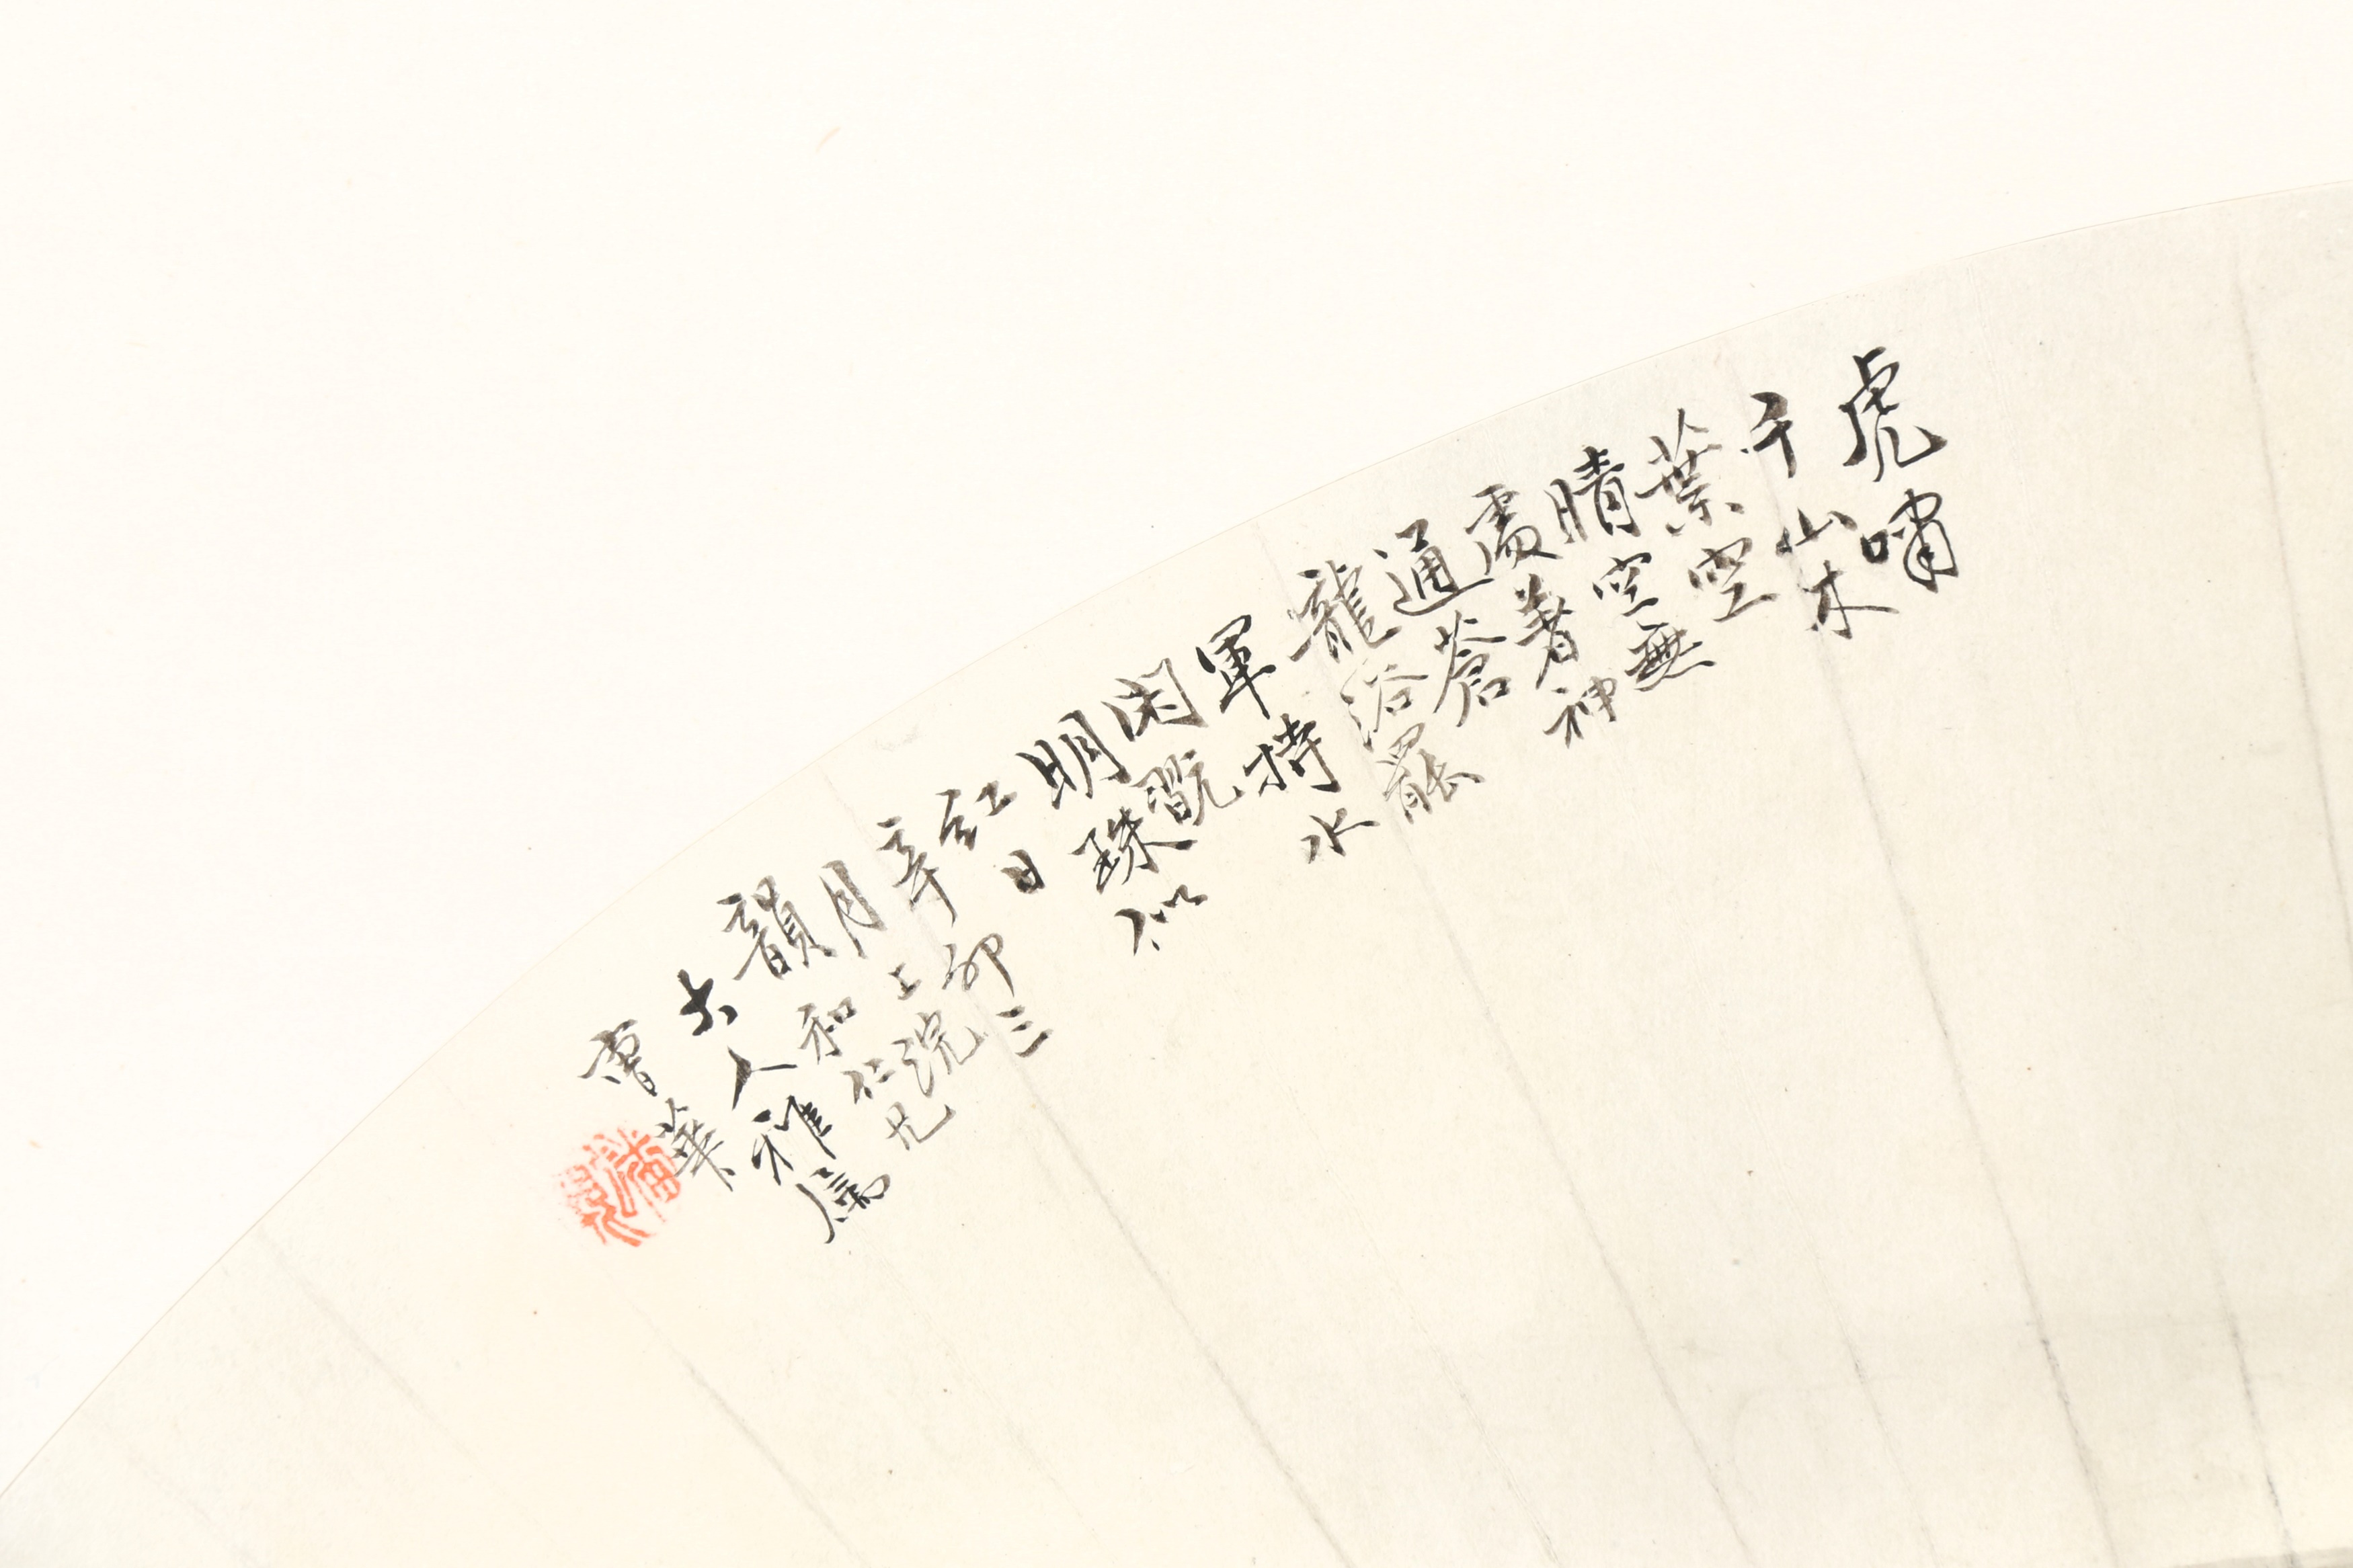 虎嘯
千山木
葉空
晴空無
處著神
通蒼
龍浴罷
軍持水
閑翫
明珠似
紅日
辛卯三
月上浣
韻和仁兄
大人雅屬
曹華